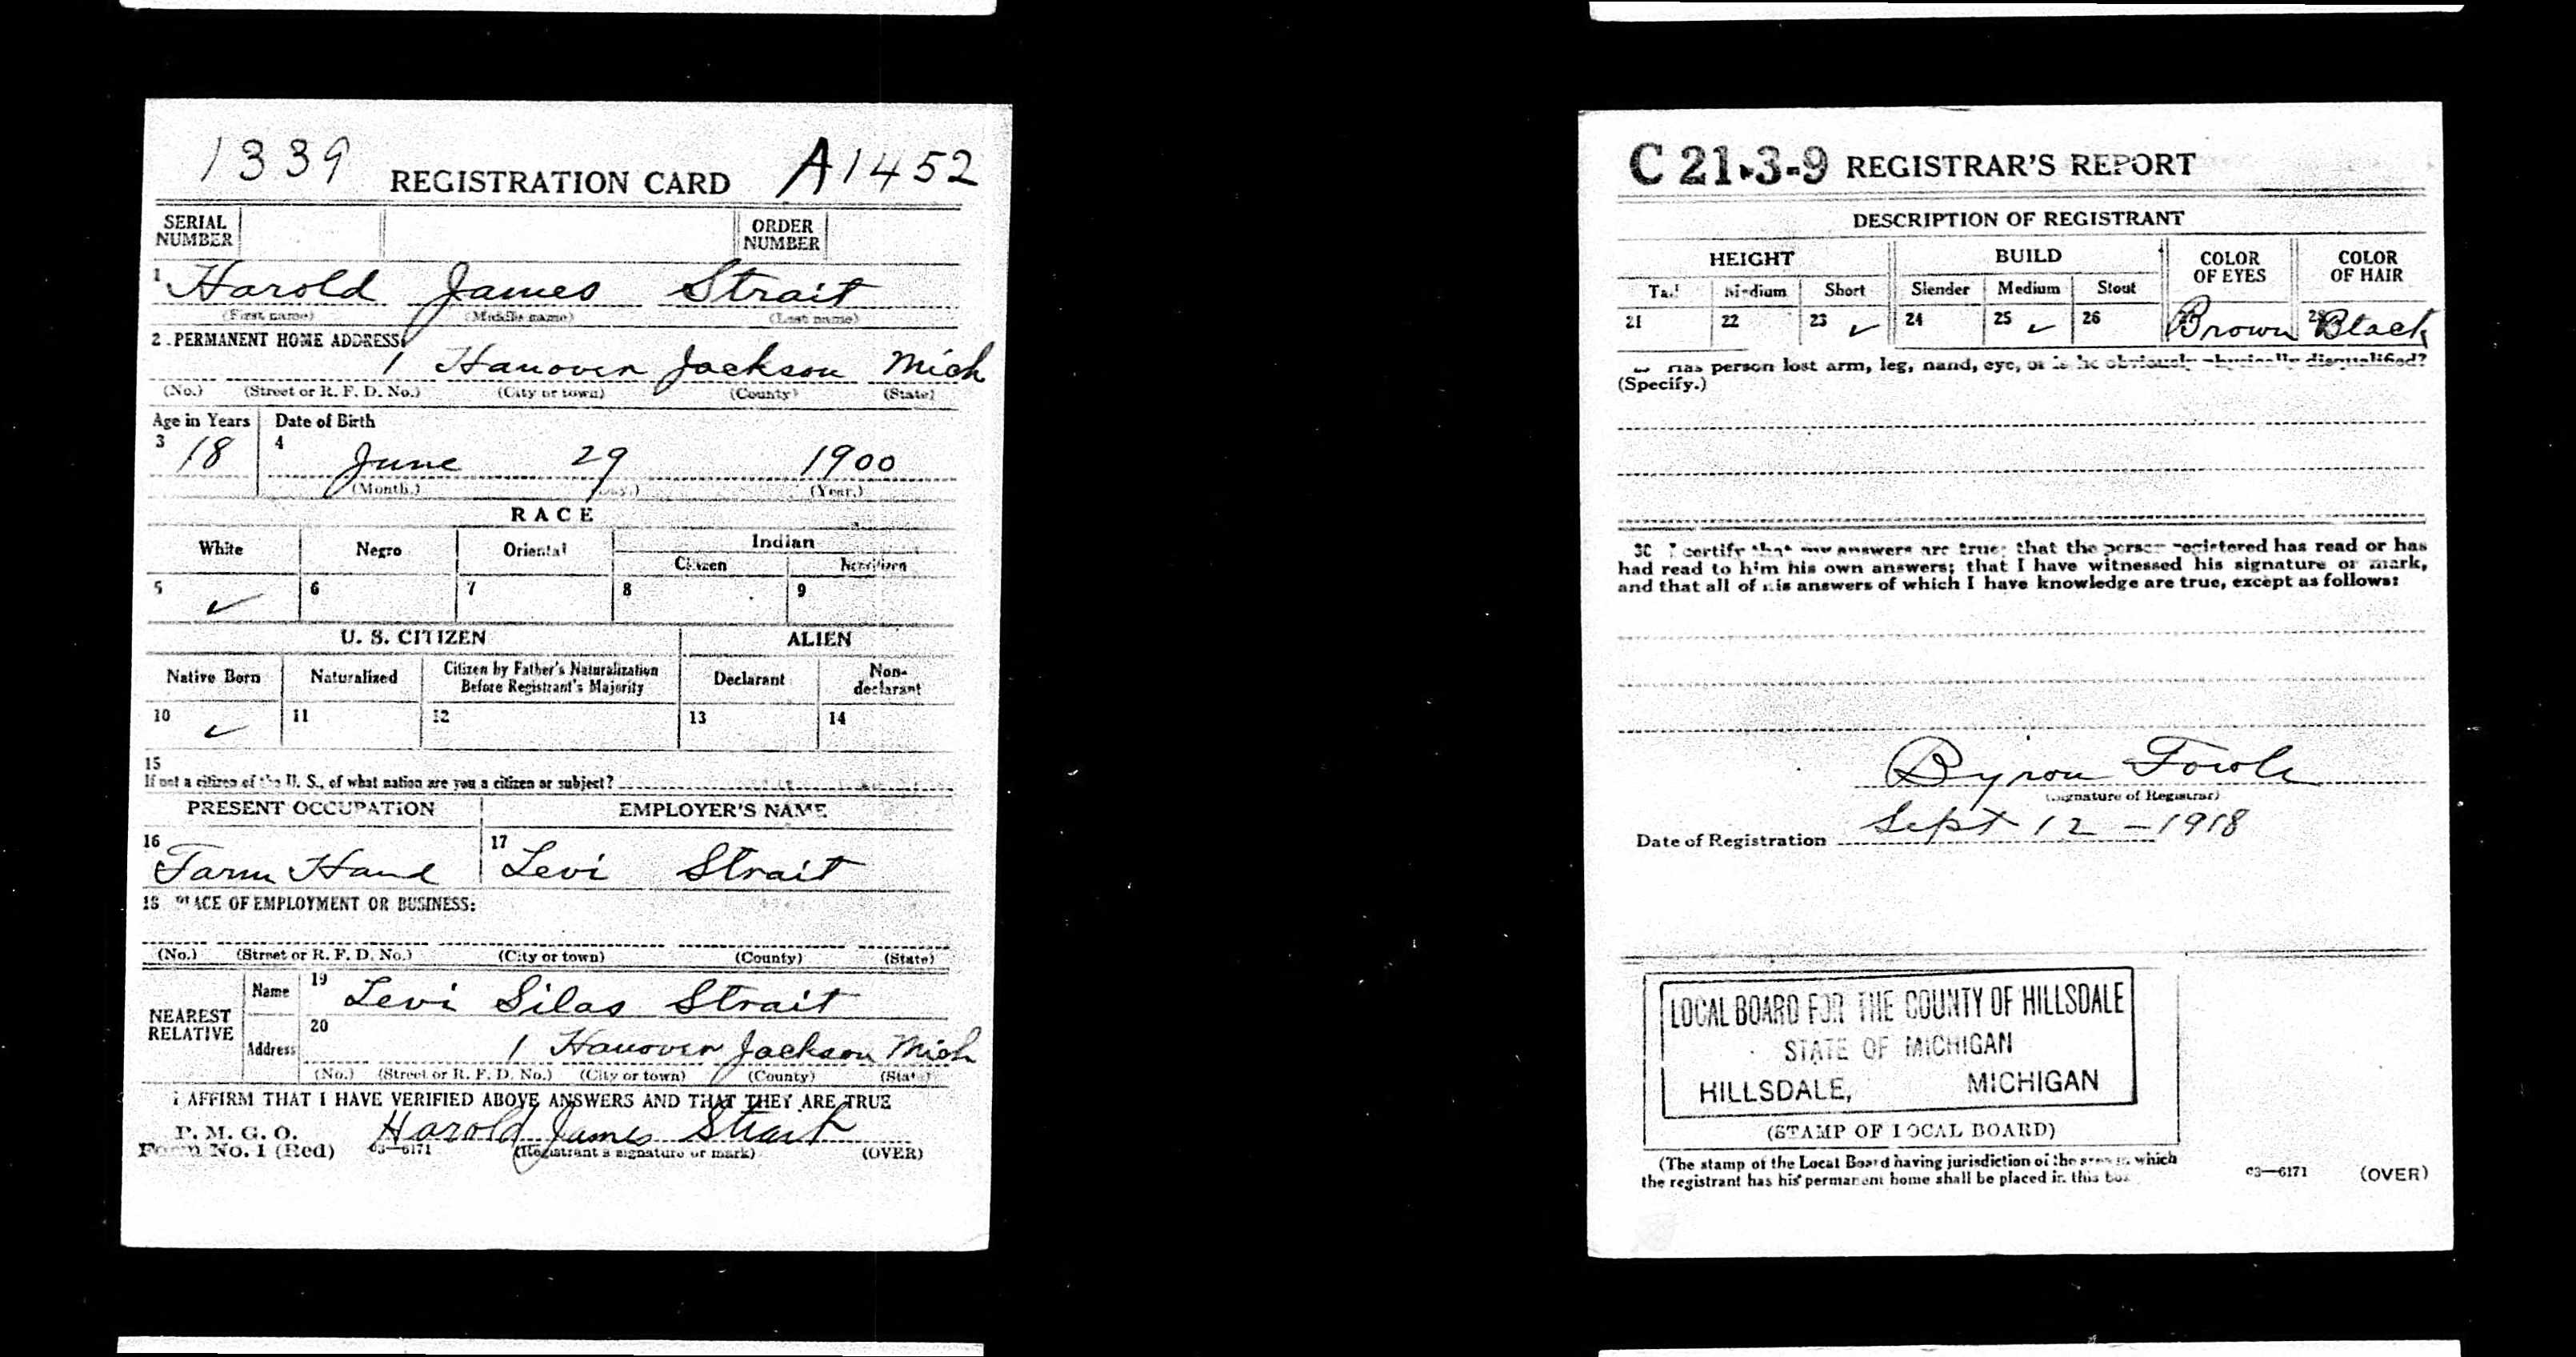 1339 REGISTRATION CARD A1452
SERIAL NUMBER ORDER NUMBER
1 Harold James Strait
(First name) (Middle name) (Last name)
2 PERMANENT HOME ADDRESS:
1 Hanover Jackson Mich
(No.) (Street or R. F. D. No.) (City or town) (County) (State)
Age in Years Date of Birth
3 18 4 June 29 1900
(Month.) (Day.) (Year.)
RACE
White Negro Oriental Indian
Citizen Noncitizen
5 ✓ 6 7 8 9
U. S. CITIZEN ALIEN
Native Born Naturalized Citizen by Father's Naturalization Before Registrant's Majority Declarant Non-declarant
10 ✓ 11 12 13 14
15
If not a citizen of the U. S., of what nation are you a citizen or subject?
PRESENT OCCUPATION EMPLOYER'S NAME
16 Farm Hand 17 Levi Strait
18 PLACE OF EMPLOYMENT OR BUSINESS:
(No.) (Street or R. F. D. No.) (City or town) (County) (State)
NEAREST RELATIVE
Name 19 Levi Silas Strait
Address 20 1 Hanover Jackson Mich
(No.) (Street or R. F. D. No.) (City or town) (County) (State)
I AFFIRM THAT I HAVE VERIFIED ABOVE ANSWERS AND THAT THEY ARE TRUE
P. M. G. O.
Form No. 1 (Red) 03—6171 Harold James Strait
(Registrant's signature or mark) (OVER)
C 21-3-9 REGISTRAR'S REPORT
DESCRIPTION OF REGISTRANT
HEIGHT BUILD COLOR OF EYES COLOR OF HAIR
Tall Medium Short Slender Medium Stout
21 22 23 ✓ 24 25 ✓ 26 27 Brown 28 Black
29 Has person lost arm, leg, hand, eye, or is he obviously physically disqualified?
(Specify.)
30 I certify that my answers are true; that the person registered has read or has
had read to him his own answers; that I have witnessed his signature or mark,
and that all of his answers of which I have knowledge are true, except as follows:
Byron Fowle
(Signature of Registrar)
Date of Registration Sept 12 - 1918
LOCAL BOARD FOR THE COUNTY OF HILLSDALE
STATE OF MICHIGAN
HILLSDALE, MICHIGAN
(STAMP OF LOCAL BOARD)
(The stamp of the Local Board having jurisdiction of the area in which
the registrant has his permanent home shall be placed in this box
03—6171 (OVER)